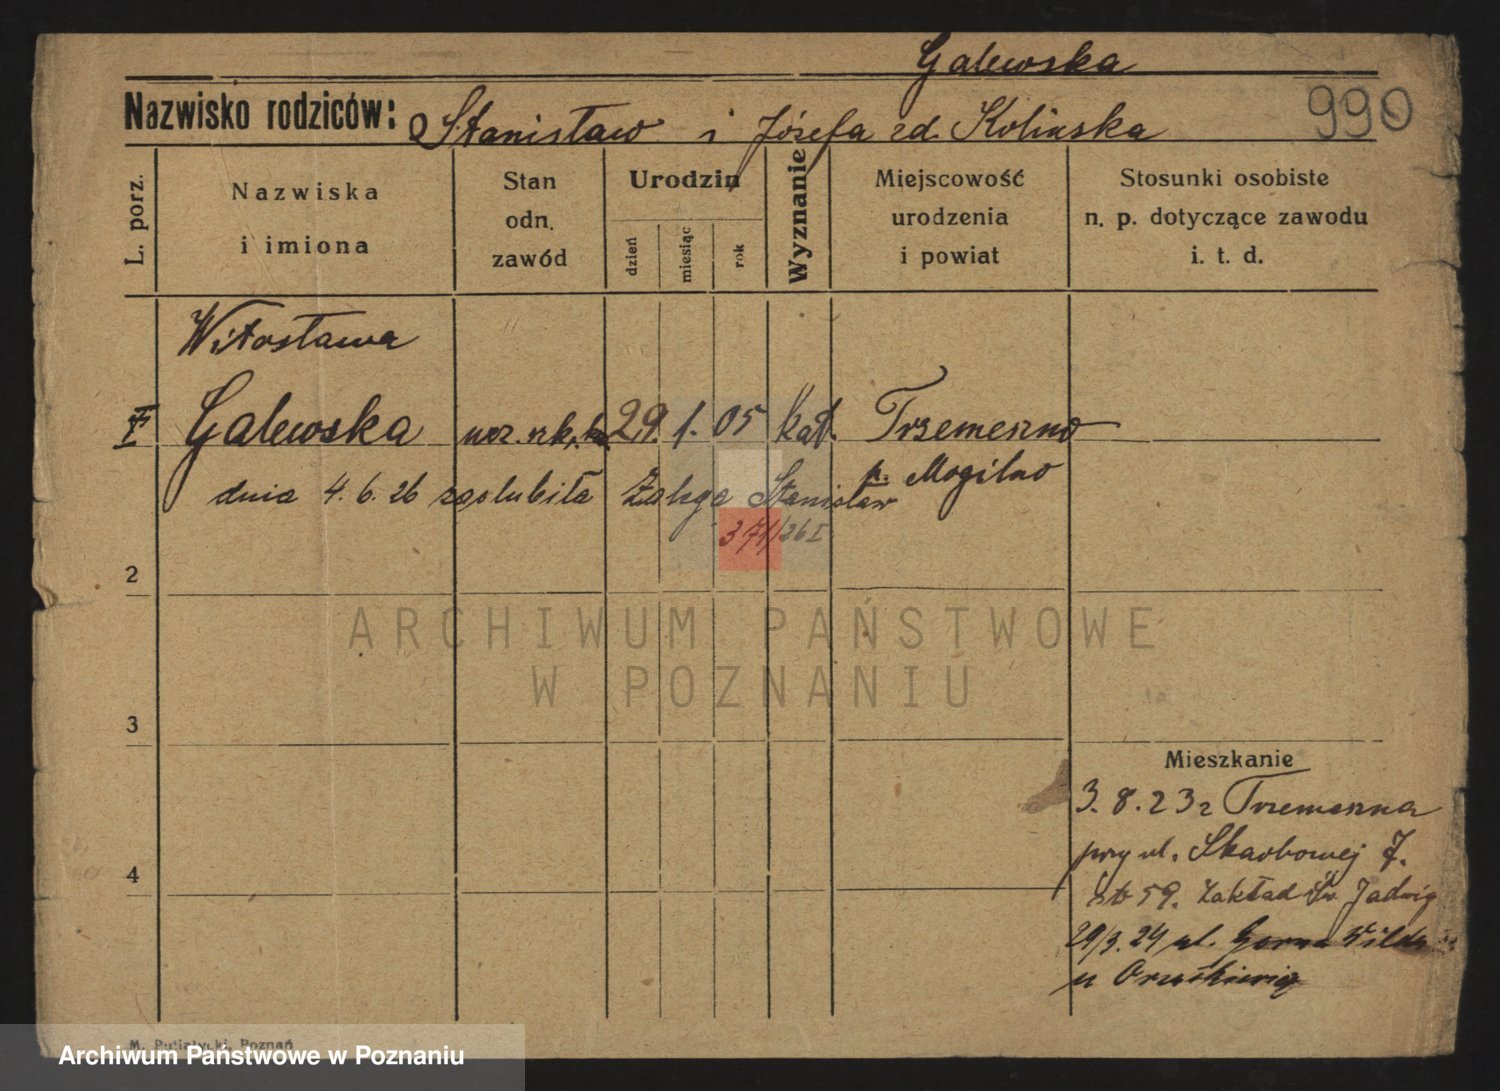 Galewska
Nazwisko rodziców: Stanisław i Józefa zd. Kolinska
990
L. porz.
Nazwiska i imiona
Stan odn. zawód
Urodzin
dzień
miesiąc
rok
Wyznanie
Miejscowość urodzenia i powiat
Stosunki osobiste n. p. dotyczące zawodu i. t. d.
Witosława
Galewska 29. 1. 05 kat. Trzemeszno
p. Mogilno
dnia 4. 6. 26 zaslubiła Stanisław
371/26 I
2
ARCHIWUM PAŃSTWOWE
W POZNANIU
3
Mieszkanie
3. 8. 23 z Trzemeszna
przy ul. Skarbowej 7.
59. Zakład Św. Jadwig
4
29/3. 24 ul. Gorna Wilda
u
M. Putiatycki, Poznań
Archiwum Państwowe w Poznaniu